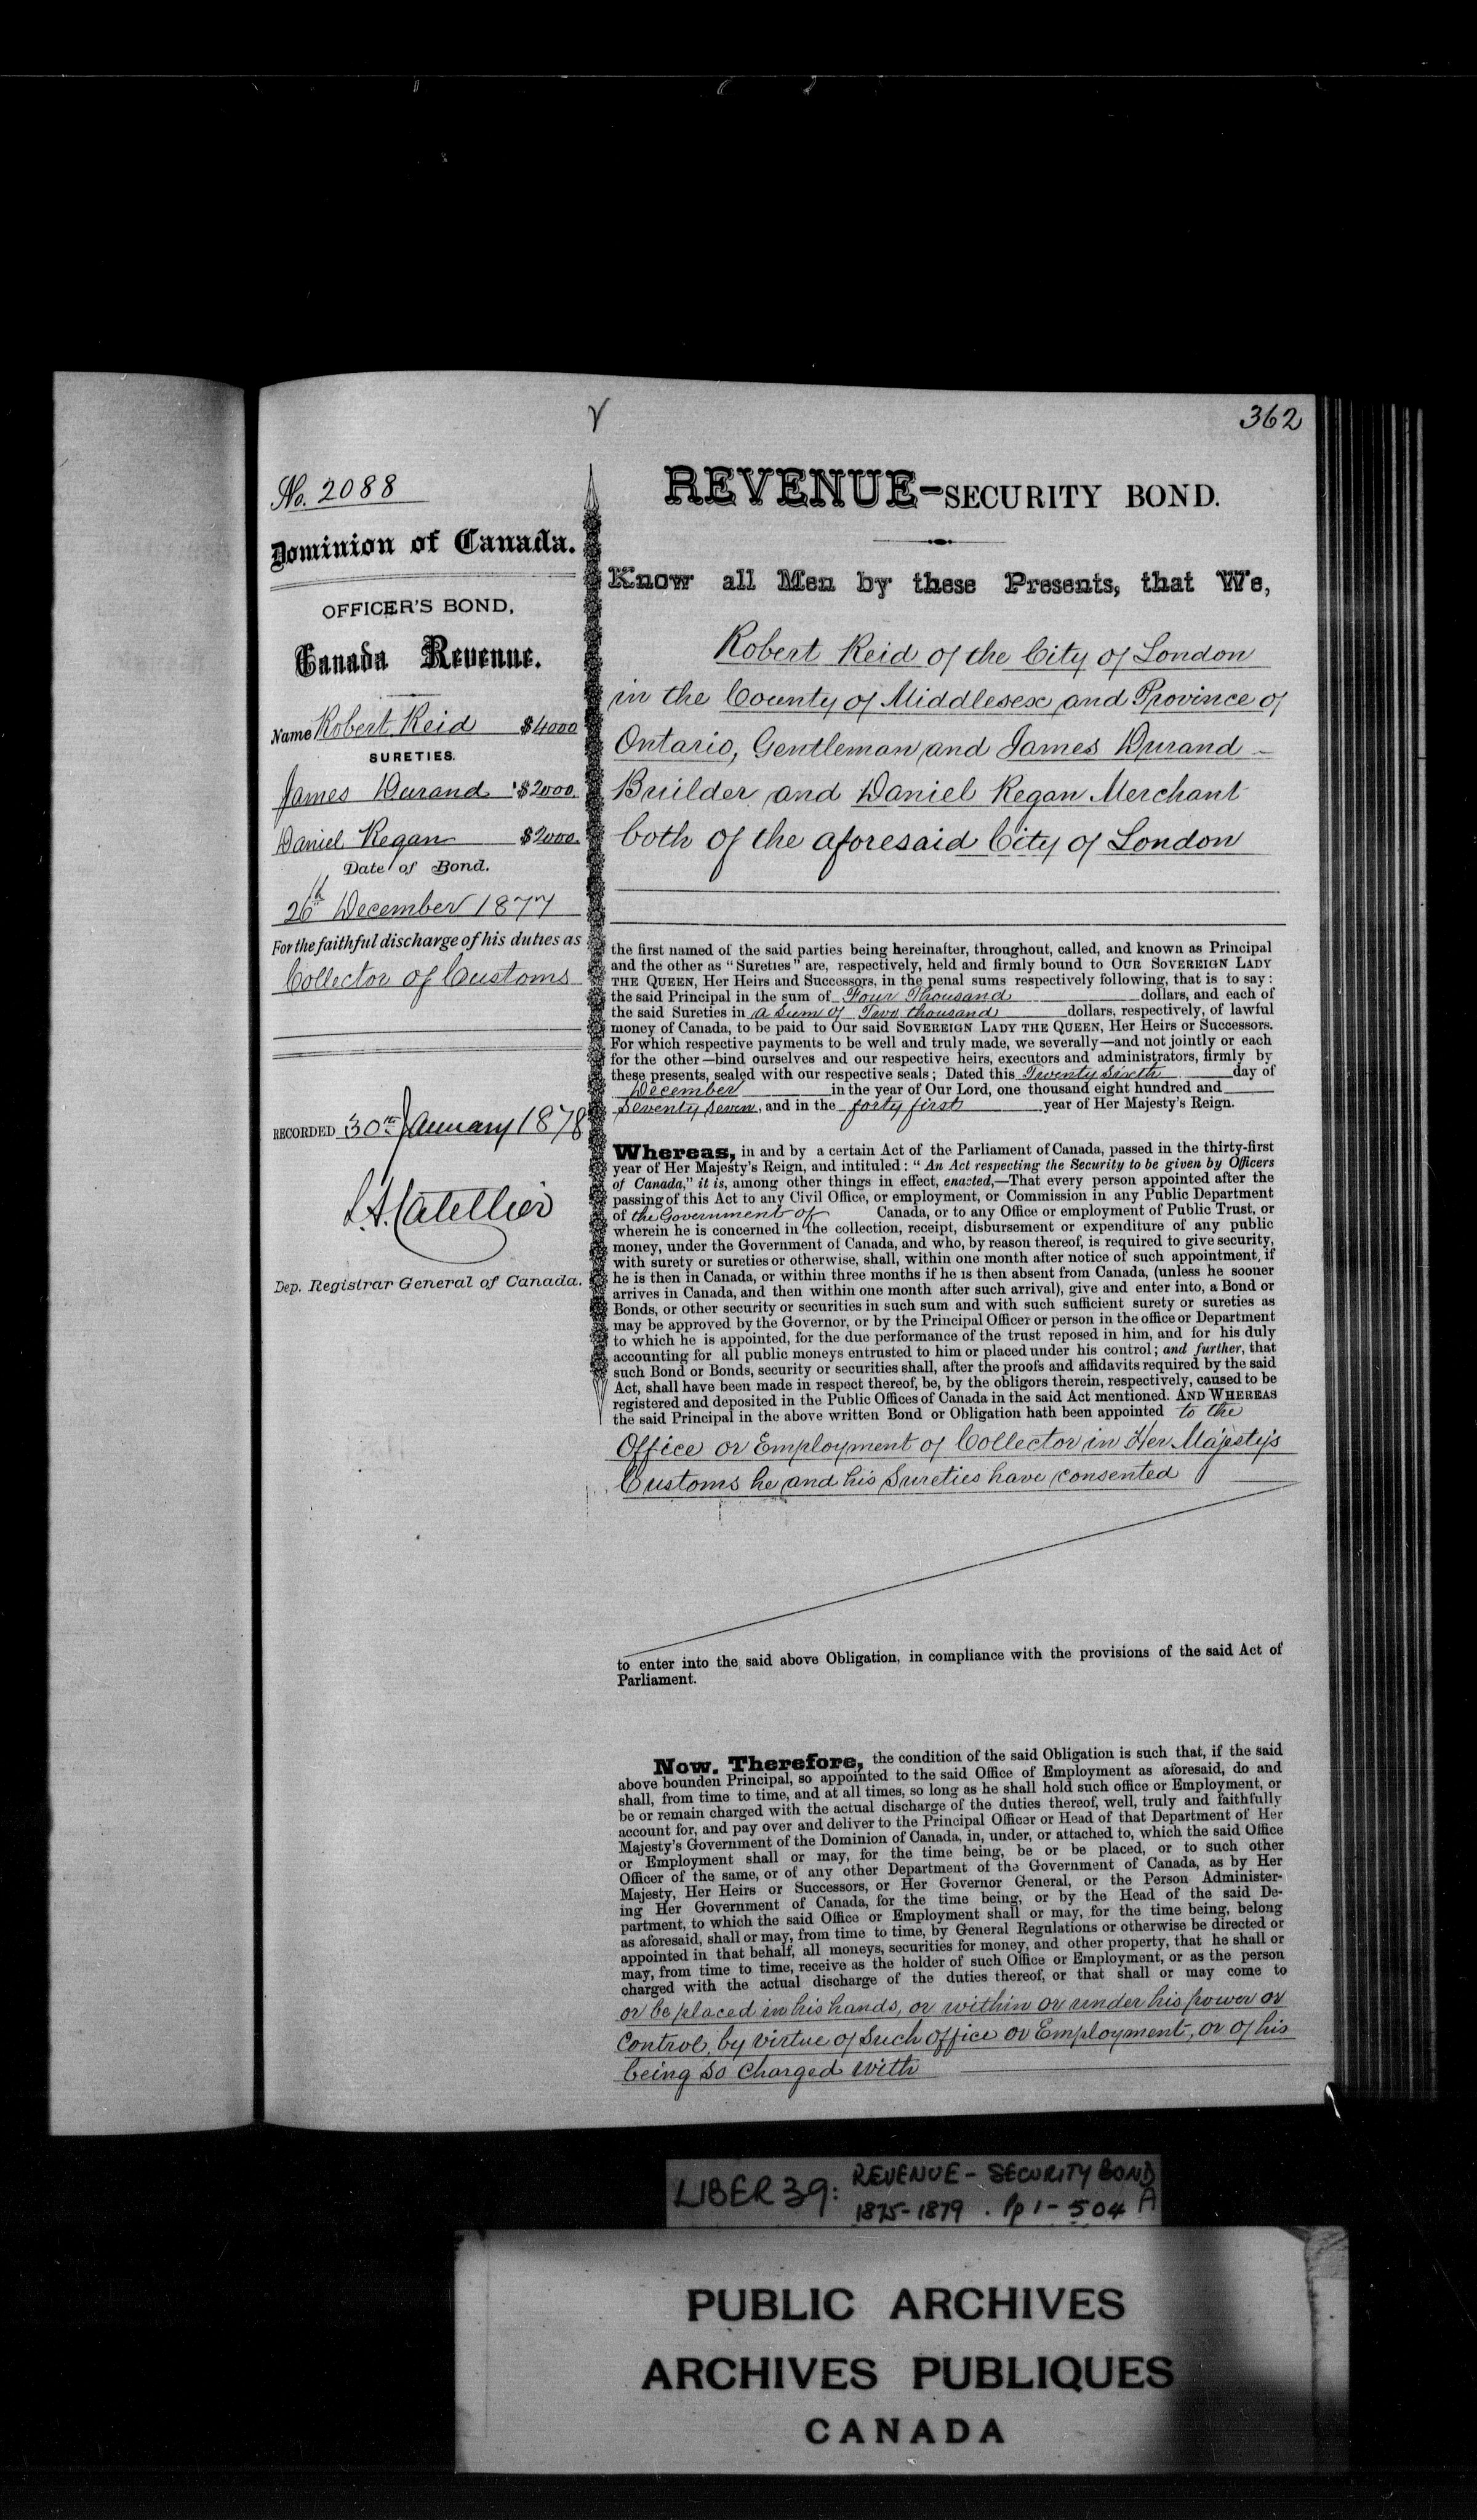 362
No. 2088
Dominion of Canada.
OFFICER'S BOND,
Canada Revenue.
Name Robert Reid $4000
SURETIES.
James Durand $2000.
Daniel Regan $2000.
Date of Bond.
26th December 1877
For the faithful discharge of his duties as
Collector of Customs
RECORDED 30th January 1878
L.A. Catellier
Dep. Registrar General of Canada.
REVENUE-SECURITY BOND.
Know all Men by these Presents, that We,
Robert Reid of the City of London
in the County of Middlesex and Province of
Ontario, Gentleman and James Durand
Builder and Daniel Regan Merchant
both of the aforesaid City of London
the first named of the said parties being hereinafter, throughout, called, and known as Principal
and the other as "Sureties" are, respectively, held and firmly bound to OUR SOVEREIGN LADY
THE QUEEN, Her Heirs and Successors, in the penal sums respectively following, that is to say:
the said Principal in the sum of Four Thousand dollars, and each of
the said Sureties in a Sum of Two thousand dollars, respectively, of lawful
money of Canada, to be paid to Our said SOVEREIGN LADY THE QUEEN, Her Heirs or Successors.
For which respective payments to be well and truly made, we severally—and not jointly or each
for the other—bind ourselves and our respective heirs, executors and administrators, firmly by
these presents, sealed with our respective seals; Dated this Twenty Sixth day of
December in the year of Our Lord, one thousand eight hundred and
Seventy Seven, and in the forty first year of Her Majesty's Reign.
Whereas, in and by a certain Act of the Parliament of Canada, passed in the thirty-first
year of Her Majesty's Reign, and intituled: "An Act respecting the Security to be given by Officers
of Canada," it is, among other things in effect, enacted,—That every person appointed after the
passing of this Act to any Civil Office, or employment, or Commission in any Public Department
of the Government of Canada, or to any Office or employment of Public Trust, or
wherein he is concerned in the collection, receipt, disbursement or expenditure of any public
money, under the Government of Canada, and who, by reason thereof, is required to give security,
with surety or sureties or otherwise, shall, within one month after notice of such appointment, if
he is then in Canada, or within three months if he is then absent from Canada, (unless he sooner
arrives in Canada, and then within one month after such arrival), give and enter into, a Bond or
Bonds, or other security or securities in such sum and with such sufficient surety or sureties as
may be approved by the Governor, or by the Principal Officer or person in the office or Department
to which he is appointed, for the due performance of the trust reposed in him, and for his duly
accounting for all public moneys entrusted to him or placed under his control; and further, that
such Bond or Bonds, security or securities shall, after the proofs and affidavits required by the said
Act, shall have been made in respect thereof, be, by the obligors therein, respectively, caused to be
registered and deposited in the Public Offices of Canada in the said Act mentioned. AND WHEREAS
the said Principal in the above written Bond or Obligation hath been appointed to the
Office or Employment of Collector in Her Majesty's
Customs he and his Sureties have consented
to enter into the said above Obligation, in compliance with the provisions of the said Act of
Parliament.
Now, Therefore, the condition of the said Obligation is such that, if the said
above bounden Principal, so appointed to the said Office of Employment as aforesaid, do and
shall, from time to time, and at all times, so long as he shall hold such office or Employment, or
be or remain charged with the actual discharge of the duties thereof, well, truly and faithfully
account for, and pay over and deliver to the Principal Officer or Head of that Department of Her
Majesty's Government of the Dominion of Canada, in, under, or attached to, which the said Office
or Employment shall or may, for the time being, be or be placed, or to such other
Officer of the same, or of any other Department of the Government of Canada, as by Her
Majesty, Her Heirs or Successors, or Her Governor General, or the Person Administer-
ing Her Government of Canada, for the time being, or by the Head of the said De-
partment, to which the said Office or Employment shall or may, for the time being, belong
as aforesaid, shall or may, from time to time, by General Regulations or otherwise be directed or
appointed in that behalf, all moneys, securities for money, and other property, that he shall or
may, from time to time, receive as the holder of such Office or Employment, or as the person
charged with the actual discharge of the duties thereof, or that shall or may come to
or be placed in his hands, or within or under his power or
Control, by virtue of Such office or Employment, or of his
being so Charged with
LIBER 39: REVENUE - SECURITY BOND
1875-1879 . Pp 1 - 504 A
PUBLIC ARCHIVES
ARCHIVES PUBLIQUES
CANADA